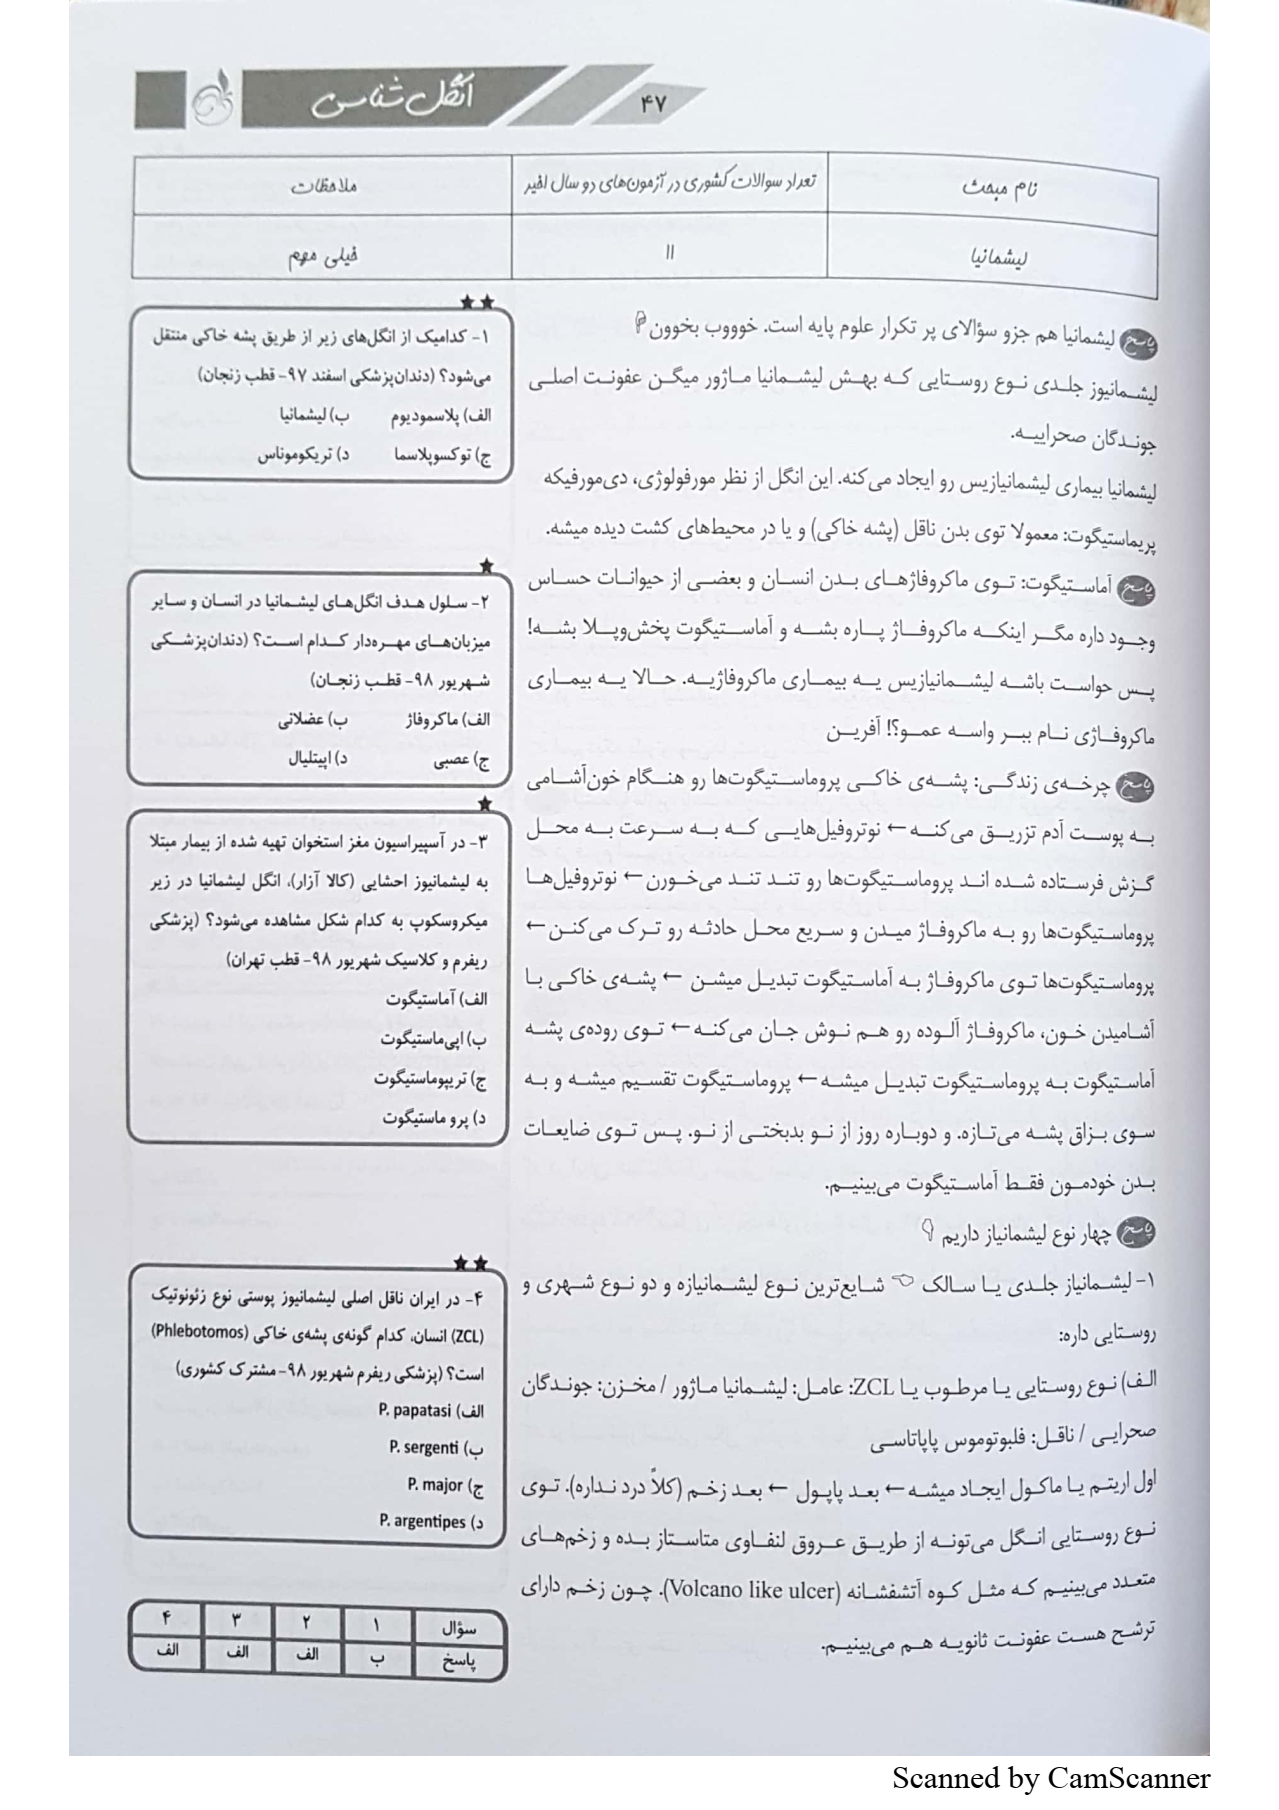 انگل شناسی
۴۷
نام مبحث
تعداد سوالات کشوری در آزمون‌های دو سال اخیر
ملاحظات
لیشمانیا
۱۱
خیلی مهم
پاسخ لیشمانیا هم جزو سؤالای پر تکرار علوم پایه است. خوووب بخوون
لیشمانیوز جلدی نوع روستایی که بهش لیشمانیا ماژور میگن عفونت اصلی
جوندگان صحراییه.
لیشمانیا بیماری لیشمانیازیس رو ایجاد می‌کنه. این انگل از نظر مورفولوژی، دی‌مورفیکه
پریماستیگوت: معمولا توی بدن ناقل (پشه خاکی) و یا در محیط‌های کشت دیده میشه.
پاسخ آماستیگوت: توی ماکروفاژهای بدن انسان و بعضی از حیوانات حساس
وجود داره مگر اینکه ماکروفاژ پاره بشه و آماستیگوت پخش‌وپلا بشه!
پس حواست باشه لیشمانیازیس یه بیماری ماکروفاژیه. حالا یه بیماری
ماکروفاژی نام ببر واسه عمو؟! آفرین
پاسخ چرخه‌ی زندگی: پشه‌ی خاکی پروماستیگوت‌ها رو هنگام خون‌آشامی
به پوست آدم تزریق می‌کنه ← نوتروفیل‌هایی که به سرعت به محل
گزش فرستاده شده اند پروماستیگوت‌ها رو تند تند می‌خورن ← نوتروفیل‌ها
پروماستیگوت‌ها رو به ماکروفاژ میدن و سریع محل حادثه رو ترک می‌کنن ←
پروماستیگوت‌ها توی ماکروفاژ به آماستیگوت تبدیل میشن ← پشه‌ی خاکی با
آشامیدن خون، ماکروفاژ آلوده رو هم نوش جان می‌کنه ← توی روده‌ی پشه
آماستیگوت به پروماستیگوت تبدیل میشه ← پروماستیگوت تقسیم میشه و به
سوی بزاق پشه می‌تازه. و دوباره روز از نو بدبختی از نو. پس توی ضایعات
بدن خودمون فقط آماستیگوت می‌بینیم.
پاسخ چهار نوع لیشمانیاز داریم
۱- لیشمانیاز جلدی یا سالک شایع‌ترین نوع لیشمانیازه و دو نوع شهری و
روستایی داره:
الف) نوع روستایی یا مرطوب یا ZCL: عامل: لیشمانیا ماژور / مخزن: جوندگان
صحرایی / ناقل: فلبوتوموس پاپاتاسی
اول اریتم یا ماکول ایجاد میشه ← بعد پاپول ← بعد زخم (کلاً درد نداره). توی
نوع روستایی انگل می‌تونه از طریق عروق لنفاوی متاستاز بده و زخم‌های
متعدد می‌بینیم که مثل کوه آتشفشانه (Volcano like ulcer). چون زخم دارای
ترشح هست عفونت ثانویه هم می‌بینیم.
★★
۱- کدامیک از انگل‌های زیر از طریق پشه خاکی منتقل
می‌شود؟ (دندان‌پزشکی اسفند ۹۷- قطب زنجان)
الف) پلاسمودیوم ب) لیشمانیا
ج) توکسوپلاسما د) تریکوموناس
★
۲- سلول هدف انگل‌های لیشمانیا در انسان و سایر
میزبان‌های مهره‌دار کدام است؟ (دندان‌پزشکی
شهریور ۹۸- قطب زنجان)
الف) ماکروفاژ ب) عضلانی
ج) عصبی د) اپیتلیال
★
۳- در آسپیراسیون مغز استخوان تهیه شده از بیمار مبتلا
به لیشمانیوز احشایی (کالا آزار)، انگل لیشمانیا در زیر
میکروسکوپ به کدام شکل مشاهده می‌شود؟ (پزشکی
ریفرم و کلاسیک شهریور ۹۸- قطب تهران)
الف) آماستیگوت
ب) اپی‌ماستیگوت
ج) تریپوماستیگوت
د) پرو ماستیگوت
★★
۴- در ایران ناقل اصلی لیشمانیوز پوستی نوع زئونوتیک
(ZCL) انسان، کدام گونه‌ی پشه‌ی خاکی (Phlebotomos)
است؟ (پزشکی ریفرم شهریور ۹۸- مشترک کشوری)
الف) P. papatasi
ب) P. sergenti
ج) P. major
د) P. argentipes
سؤال ۱ ۲ ۳ ۴
پاسخ ب الف الف الف
Scanned by CamScanner